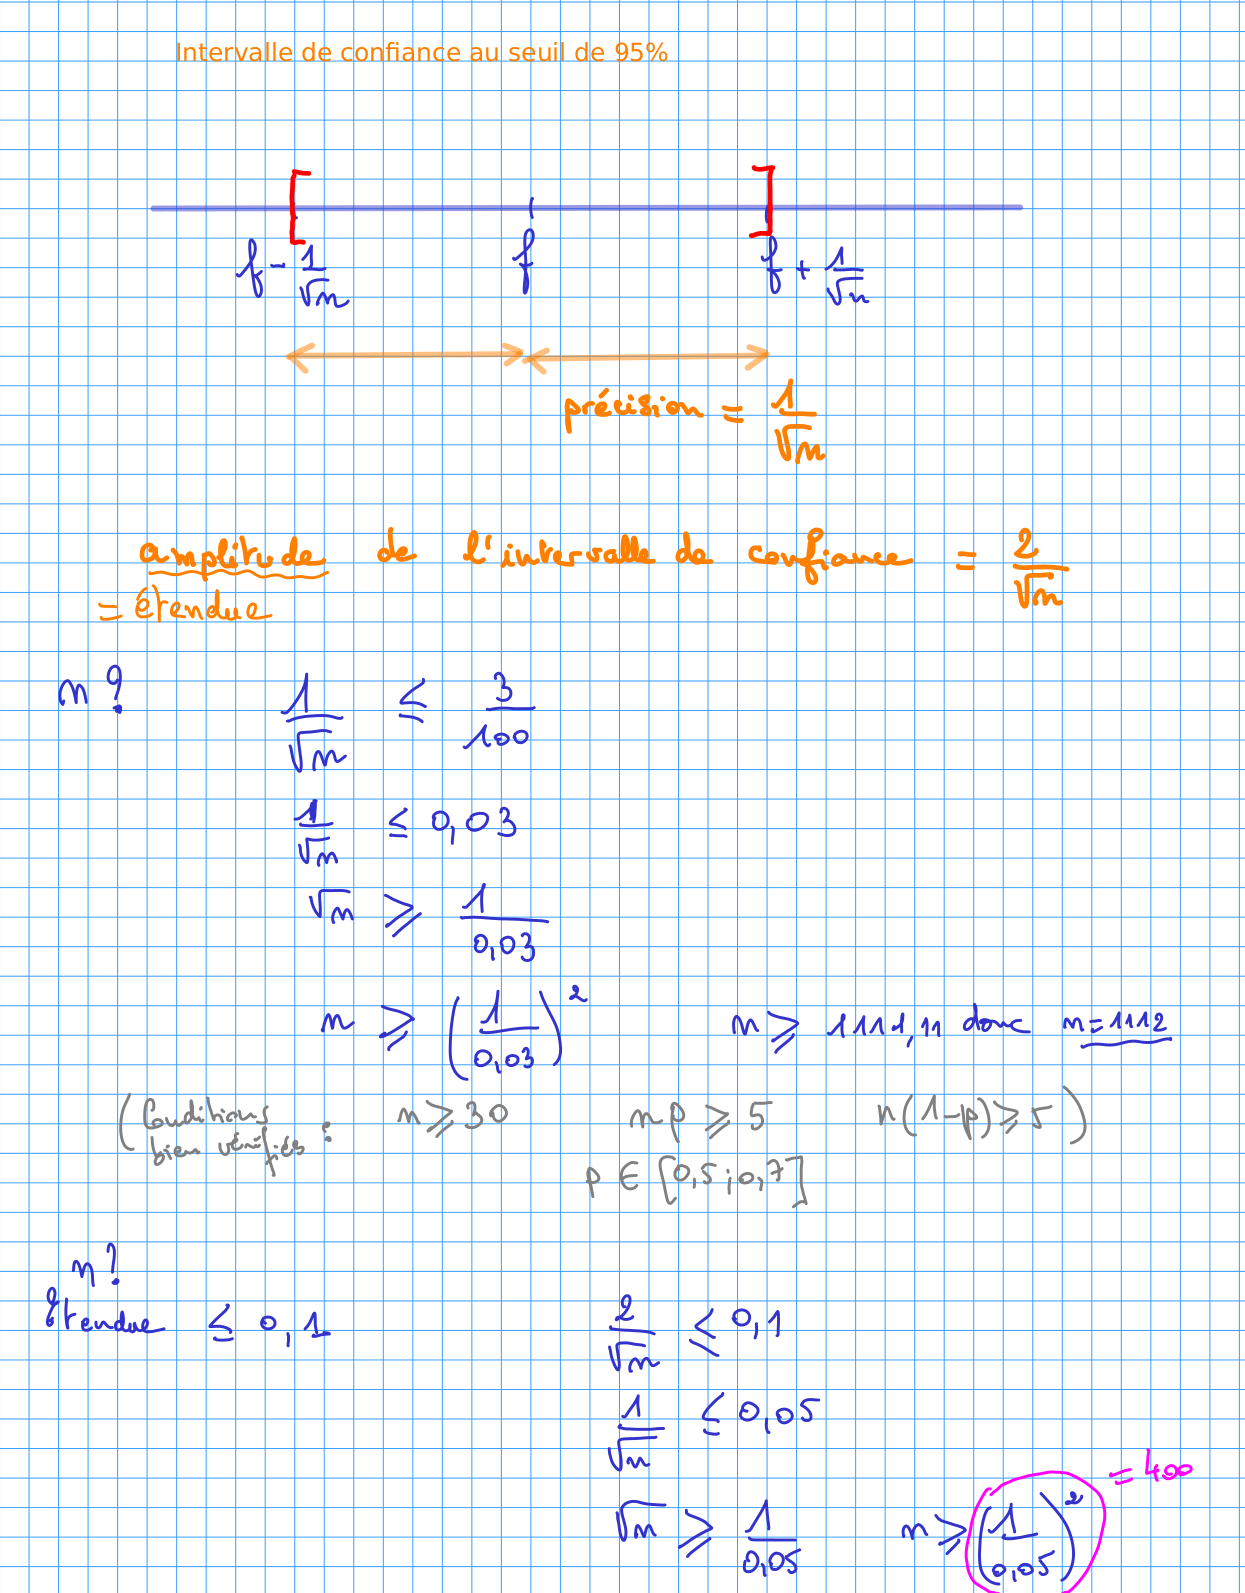 Intervalle de confiance au seuil de 95%
f - 1/√n f f + 1/√n
précision = 1/√n
amplitude de l'intervalle de confiance = 2/√n
= étendue
n ? 1/√n ≤ 3/100
1/√n ≤ 0,03
√n ⩾ 1/0,03
n ⩾ (1/0,03)² n ⩾ 1111,11 donc n=1112
(Conditions bien vérifiés : n ⩾ 30 np ⩾ 5 n(1-p) ⩾ 5)
p ∈ [0,5 ; 0,7]
n ?
étendue ≤ 0,1 2/√n ≤ 0,1
1/√n ≤ 0,05
√n ⩾ 1/0,05 n ⩾ (1/0,05)² = 400